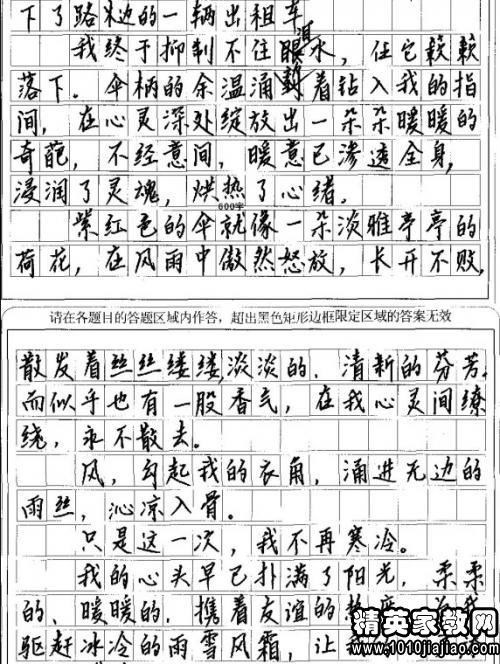 下了路边的一辆出租车
我终于抑制不住眼泪水，任它簌簌
落下。伞柄的余温涌动着钻入我的指
间，在心灵深处绽放出一朵朵暖暖的
奇葩，不经意间，暖意已渗透全身，
浸润了灵魂，烘热了心绪。
600字
紫红色的伞就像一朵淡雅亭亭的
荷花，在风雨中傲然怒放，长开不败，
请在各题目的答题区域内作答，超出黑色矩形边框限定区域的答案无效
散发着丝丝缕缕，淡淡的、清新的芬芳，
而似乎也有一股香气，在我心灵间缭
绕，永不散去。
风，勾起我的衣角，涌进无边的
雨丝，沁凉入骨。
只是这一次，我不再寒冷。
我的心头早已扑满了阳光，柔柔
的、暖暖的，携着友谊的
驱赶冰冷的雨雪风霜，让我
精英家教网
www.1010jiajiao.com